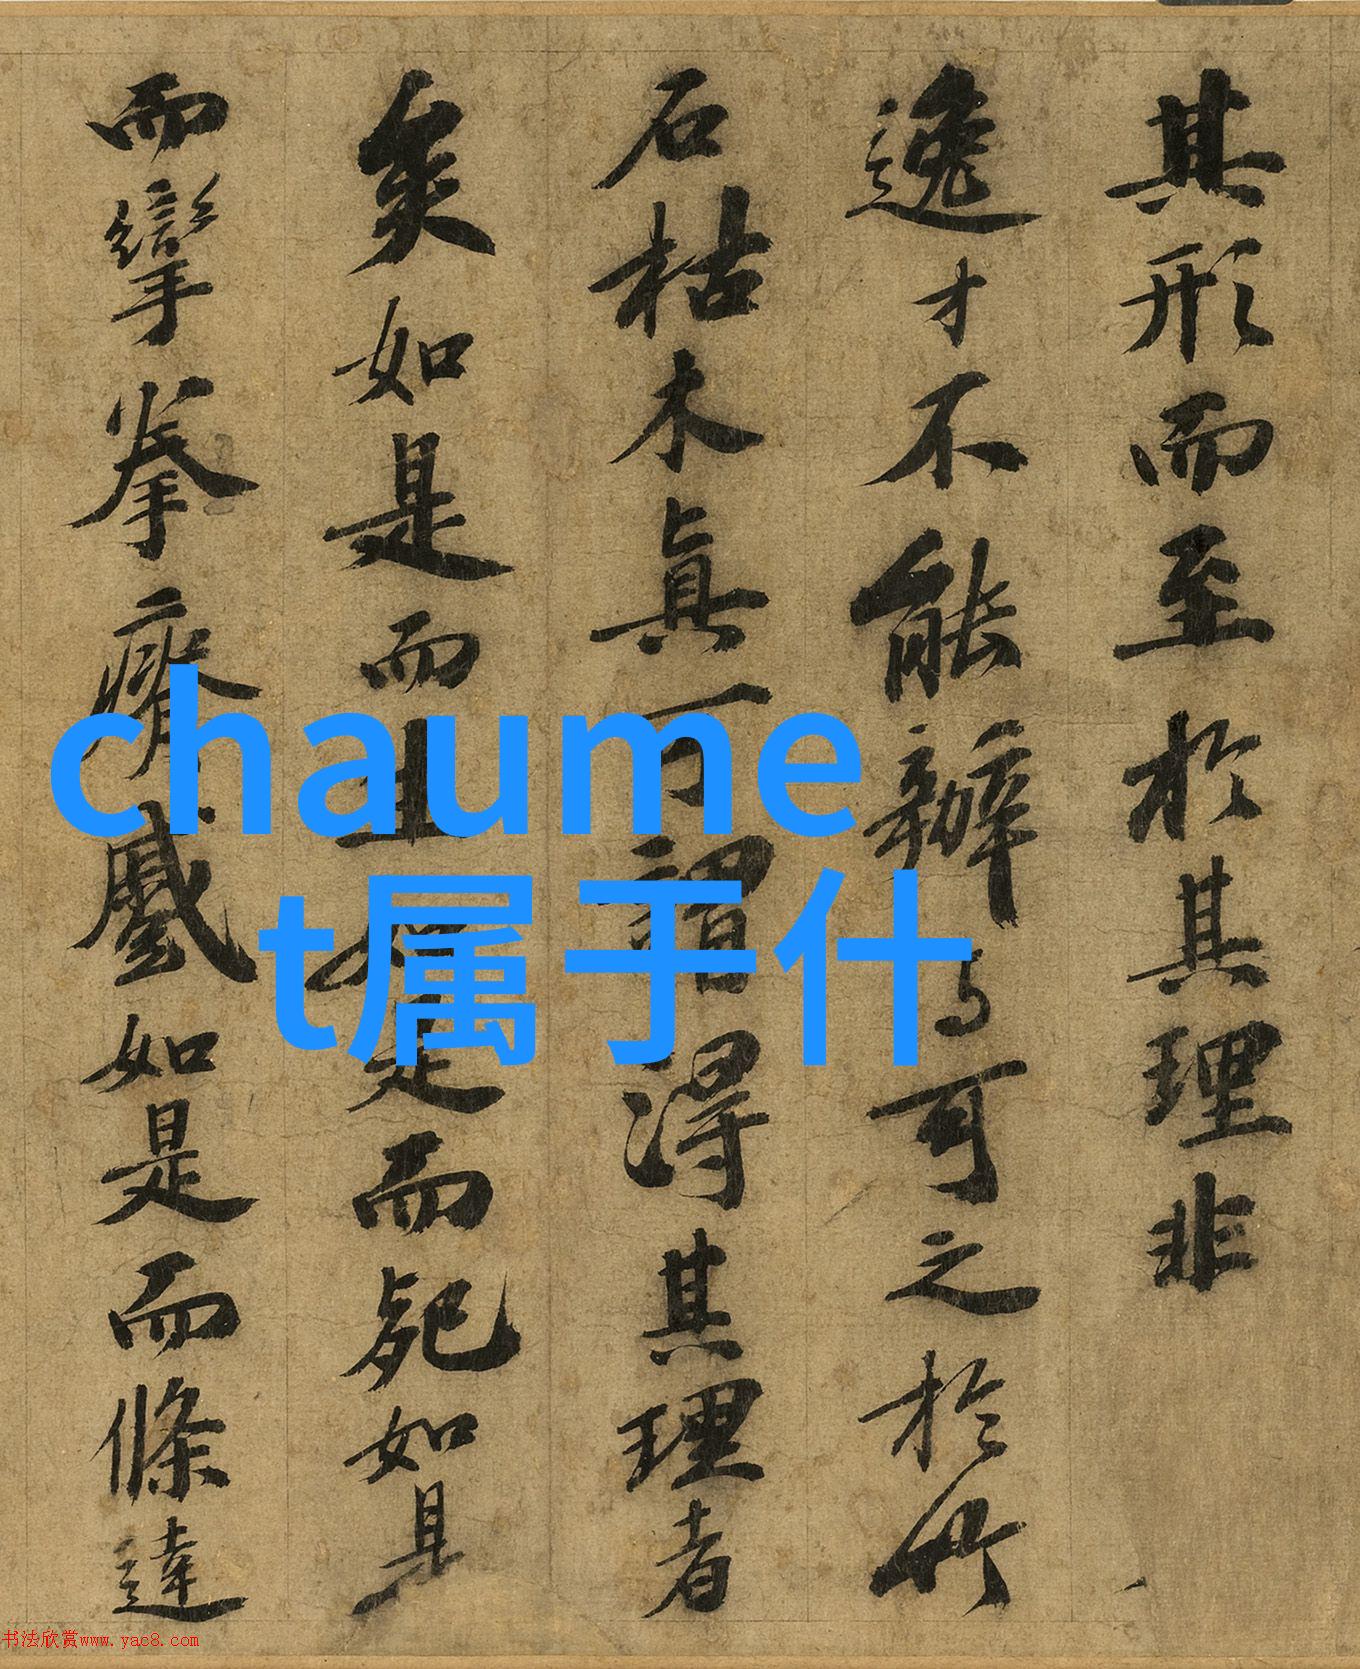 其形而至於其理非
逸才不能辦与可之於竹
石枯木真可謂得其理者
矣如是而生如是而死如是
而攣拳瘠蹙如是而條達
chaume
t属于什
书法欣赏www.yac8.com